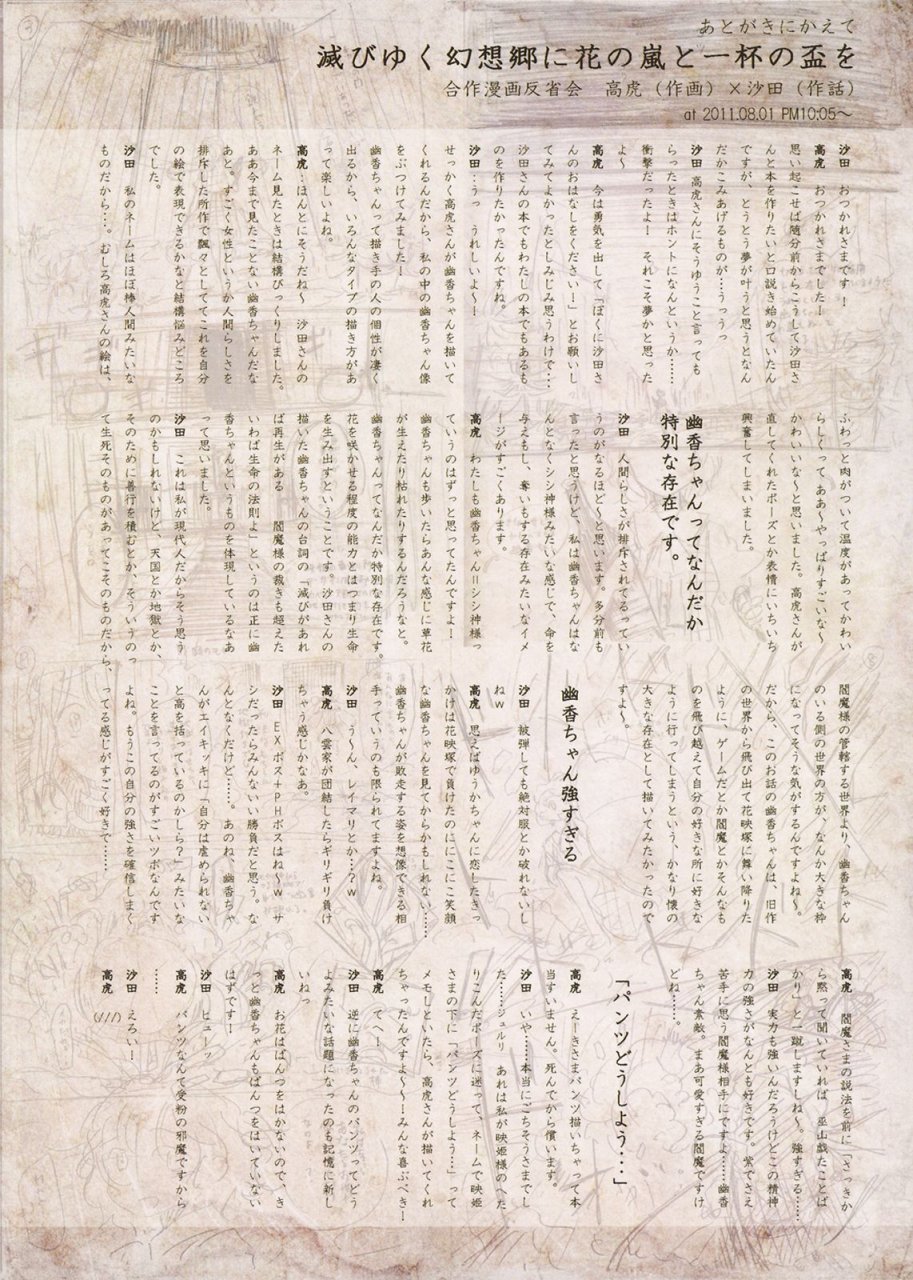 あとがきにかえて
滅びゆく幻想郷に花の嵐と一杯の盃を
合作漫画反省会　高虎（作画）×沙田（作話）
at 2011.08.01 PM10:05～
沙田　おつかれさまです！
高虎　おつかれさまでした！
思い起こせば随分前からこうして沙田さ
んと本を作りたいと口説き始めていたん
ですが、とうとう夢が叶うと思うとなん
だかこみあげるものが…うぅっ
沙田　高虎さんにそうゆうこと言っても
らったときはホントになんというか……
衝撃だったよ！　それこそ夢かと思った
よ～
高虎　今は勇気を出して「ぼくに沙田さ
んのおはなしをください！」とお願いし
てみてよかったとしみじみ思うわけで…
沙田さんの本でもわたしの本でもあるも
のを作りたかったんですね。
沙田…うっ　うれしいよ～！
せっかく高虎さんが幽香ちゃんを描いて
くれるんだから、私の中の幽香ちゃん像
をぶつけてみました！
幽香ちゃんって描き手の人の個性が凄く
出るから、いろんなタイプの描き方があ
って楽しいよね。
高虎…ほんとにそうだね～　沙田さんの
ネーム見たときは結構びっくりしました。
ああ今まで見たことない幽香ちゃんだな
あと。すごく女性というか人間らしさを
排斥した所作で飄々としててこれを自分
の絵で表現できるかなと結構悩みどころ
でした。
沙田　私のネームはほぼ棒人間みたいな
ものだから…。むしろ高虎さんの絵は、
ふわっと肉がついて温度があってかわい
らしくって、ああ～やっぱりすごいな～
かわいいな～と思いました。高虎さんが
直してくれたポーズとか表情にいちいち
興奮してしまいました。
幽香ちゃんってなんだか
特別な存在です。
沙田　人間らしさが排斥されてるってい
うのがなるほど～と思います。多分前も
言ったと思うけど、私は幽香ちゃんはな
んとなくシシ神様みたいな感じで、命を
与えもし、奪いもする存在みたいなイメ
ージがすごくあります。
高虎　わたしも幽香ちゃん＝シシ神様っ
ていうのはずっと思ってたんですよ！
幽香ちゃんも歩いたらあんな感じに草花
が生えたり枯れたりするんだろうなと。
幽香ちゃんってなんだか特別な存在です。
花を咲かせる程度の能力とはつまり生命
を生み出すということです。沙田さんの
描いた幽香ちゃんの台詞の「滅びがあれ
ば再生がある　閻魔様の裁きも超えた
いわば生命の法則よ」というのは正に幽
香ちゃんというものを体現しているなあ
って思いました。
沙田　これは私が現代人だからそう思う
のかもしれないけど、天国とか地獄とか、
そのために善行を積むとか、そういうのっ
て生死そのものがあってこそのものだから、
閻魔様の管轄する世界より、幽香ちゃん
のいる側の世界の方が、なんか大きな枠
になってそうな気がするんですよね～。
だから、このお話の幽香ちゃんは、旧作
の世界から飛び出て花映塚に舞い降りた
ように、ゲームだとか閻魔とかそんなも
のを飛び越えて自分の好きな所に好きな
ように行ってしまうという、かなり懐の
大きな存在として描いてみたかったので
すよ～。
幽香ちゃん強すぎる
沙田　被弾しても絶対服とか破れないし
ねｗ
高虎　思えばゆうかちゃんに恋したきっ
かけは花映塚で負けたのににこにこ笑顔
な幽香ちゃんを見てからかもしれない……
幽香ちゃんが敗走する姿を想像できる相
手っていうのも限られてますよね。
沙田　う～ん、レイマリとか…？ｗ
高虎　八雲家が団結したらギリギリ負け
ちゃう感じかなあ。
沙田　EXボス＋PHボスはね～ｗ　サ
シだったらみんないい勝負だと思う。な
んとなくだけど……。あのね、幽香ちゃ
んがエイキッキに「自分は虐められない
と高を括っているのかしら？」みたいな
ことを言ってるのがすごいツボなんです
よね。もうこの自分の強さを確信しまく
ってる感じがすごく好きで……
高虎　閻魔さまの説法を前に「さっきか
ら黙って聞いていれば、巫山戯たことば
かり」と一蹴しますしね～。強すぎる……
沙田　実力も強いんだろうけどこの精神
力の強さがなんとも好きです。紫でさえ
苦手に思う閻魔様相手にですよ……幽香
ちゃん素敵。まあ可愛すぎる閻魔ですけ
どね……。
「パンツどうしよう…」
高虎　えーきさまパンツ描いちゃって本
当すいません。死んでから償います。
沙田　いや……本当にごちそうさまでし
た……ジュルリ　あれは私が映姫様のへた
りこんだポーズに迷って、ネームで映姫
さまの下に「パンツどうしよう…」って
メモしといたら、高虎さんが描いてくれ
ちゃったんですよ～！みんな喜ぶべき！
高虎　てへ！
沙田　逆に幽香ちゃんのパンツってどう
よみたいな話題になったのも記憶に新し
いねっ
高虎　お花はぱんつをはかないので、き
っと幽香ちゃんもぱんつをはいていない
はずです！
沙田　ヒューッ
高虎　パンツなんて受粉の邪魔ですから
……
沙田　えろい！
高虎